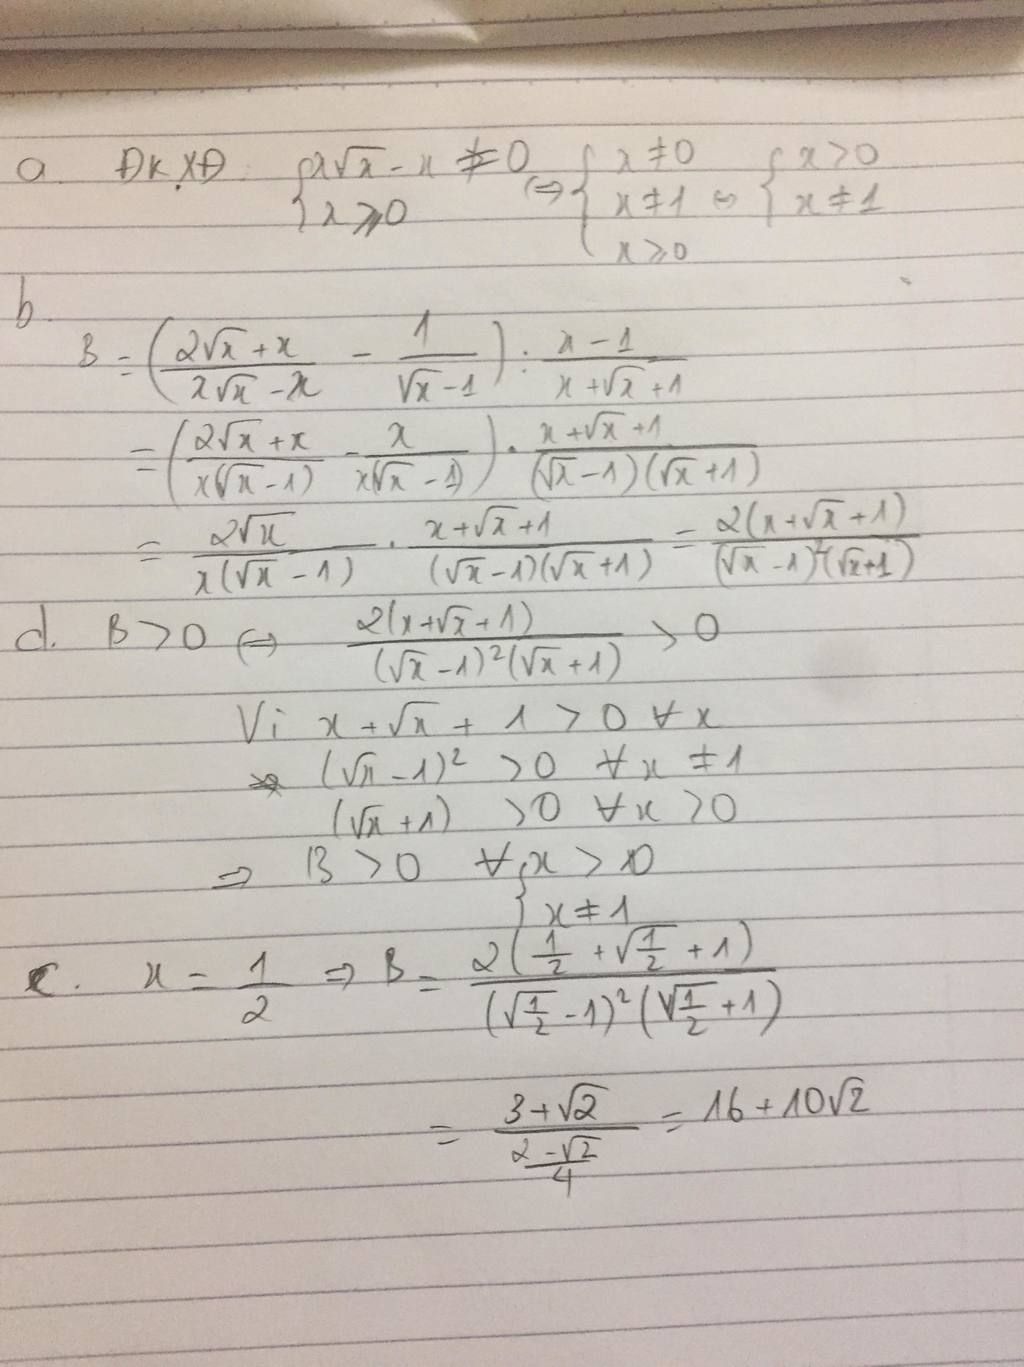 a. ĐKXĐ: { x√x - x ≠ 0 ⇔ { x ≠ 0 { x > 0
{ x ⩾ 0 { x ≠ 1 ⇔ { x ≠ 1
{ x ⩾ 0
b.
B = ( (2√x + x)/(x√x - x) - 1/(√x - 1) ) : (x - 1)/(x + √x + 1)
= ( (2√x + x)/(x(√x - 1)) - x/(x(√x - 1)) ) . (x + √x + 1)/((√x - 1)(√x + 1))
= 2√x/(x(√x - 1)) . (x + √x + 1)/((√x - 1)(√x + 1)) = 2(x + √x + 1)/((√x - 1)²(√x + 1))
d. B > 0 ⇔ 2(x + √x + 1)/((√x - 1)²(√x + 1)) > 0
Vì x + √x + 1 > 0 ∀x
(√x - 1)² > 0 ∀x ≠ 1
(√x + 1) > 0 ∀x > 0
⇒ B > 0 ∀ { x > 0
{ x ≠ 1
c. x = 1/2 ⇒ B = 2(1/2 + √(1/2) + 1)/((√(1/2) - 1)²(√(1/2) + 1))
= (3 + √2)/((2 - √2)/4) = 16 + 10√2